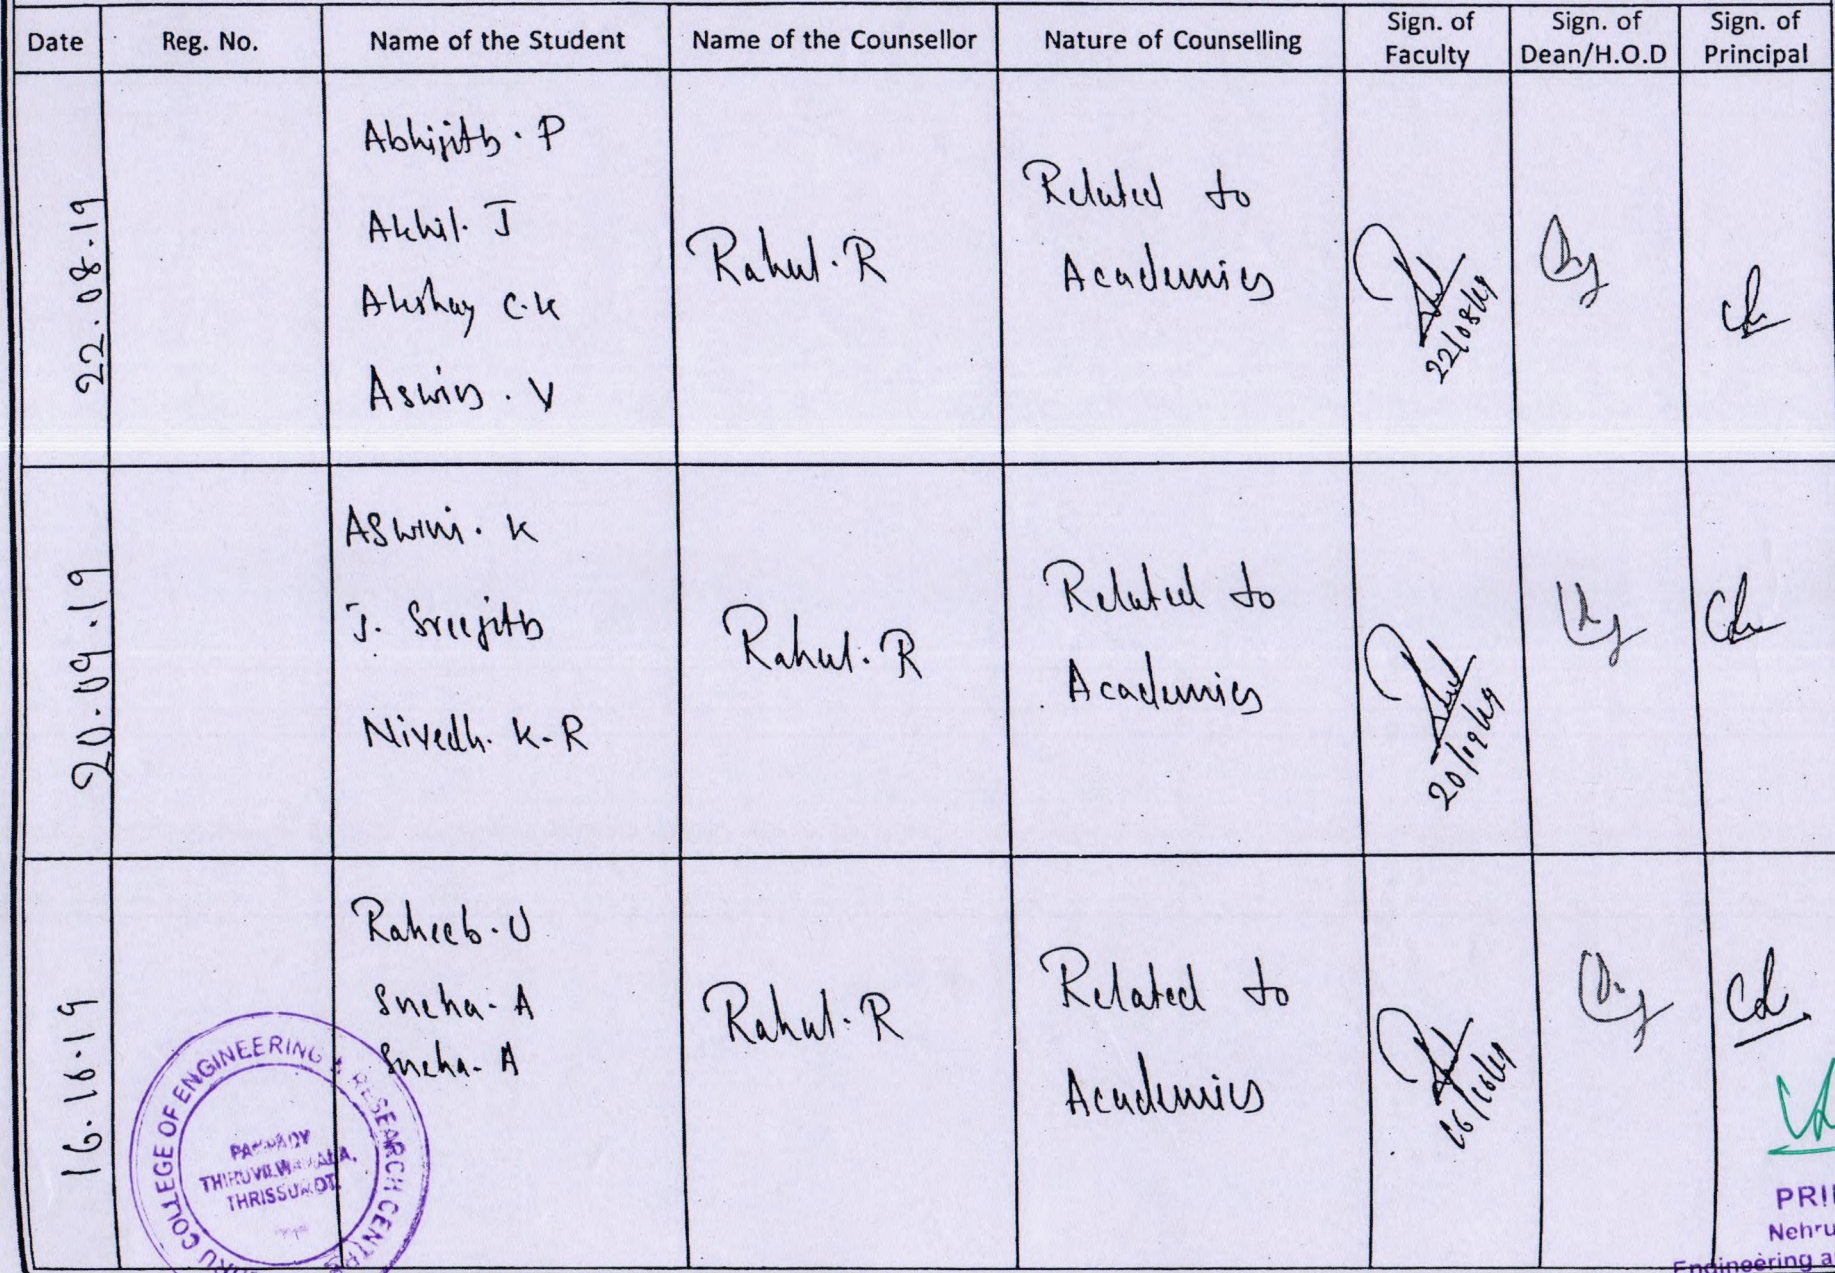 Date Reg. No. Name of the Student Name of the Counsellor Nature of Counselling Sign. of Faculty Sign. of Dean/H.O.D Sign. of Principal
22.08.19
Abhijith. P
Akhil. J
Akshay C.K
Aswin. V
Rahul. R
Related to
Academics
22/08/19
20.09.19
Aswini. K
J. Sreejith
Nivedh. K.R
Rahul. R
Related to
Academics
20/09/19
16.10.19
Raheeb. U
Sneha. A
Sneha. A
Rahul. R
Related to
Academics
16/10/19
COLLEGE OF ENGINEERING & RESEARCH CENTR
PAMPADY
THIRUVILWAMALA,
THRISSUR DT.
PRI
Nehru
Engineering a